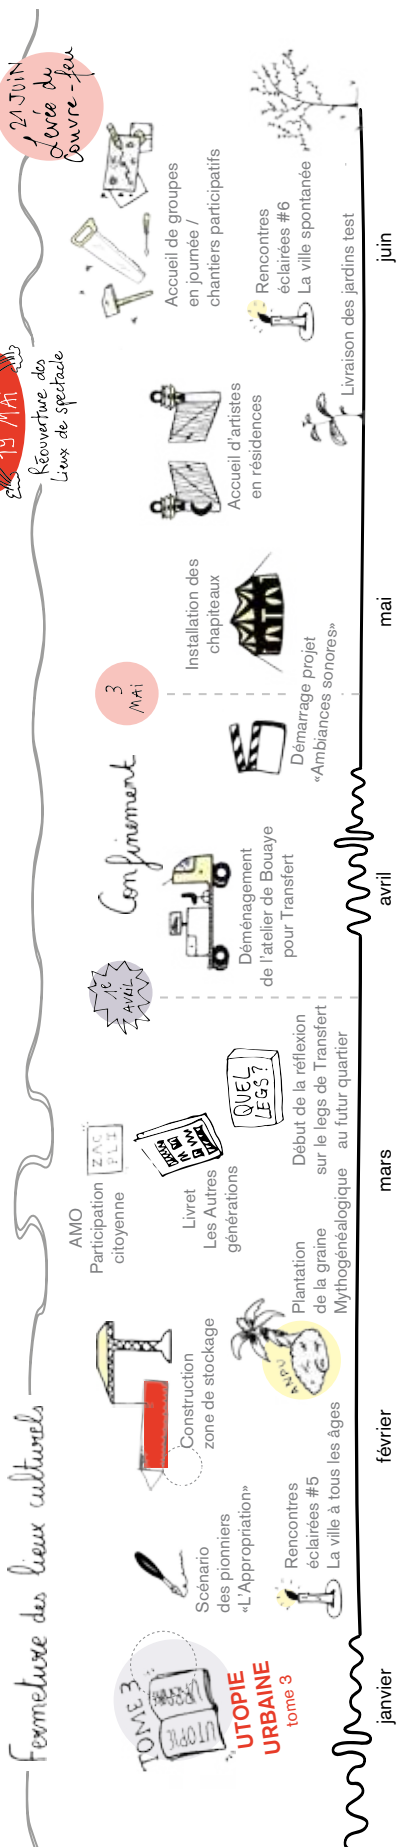 Fermeture des lieux culturels
TOME 3
UTOPIE
URBAINE
UTOPIE
URBAINE
tome 3
janvier
Scénario
des pionniers
«L'Appropriation»
Rencontres
éclairées #5
La ville à tous les âges
février
Construction
zone de stockage
ANPU
Plantation
de la graine
Mythogénéalogique
AMO
Participation
citoyenne
ZAC
PLI
Livret
Les Autres
générations
QUEL
LEGS?
Début de la réflexion
sur le legs de Transfert
au futur quartier
mars
1e
AVRIL
Confinement
Déménagement
de l'atelier de Bouaye
pour Transfert
avril
3
MAi
Démarrage projet
«Ambiances sonores»
Installation des
chapiteaux
mai
19 MAI
Réouverture des
Lieux de spectacle
Accueil d'artistes
en résidences
Livraison des jardins test
Accueil de groupes
en journée /
chantiers participatifs
Rencontres
éclairées #6
La ville spontanée
juin
21 JUIN
Levée du
Couvre-feu